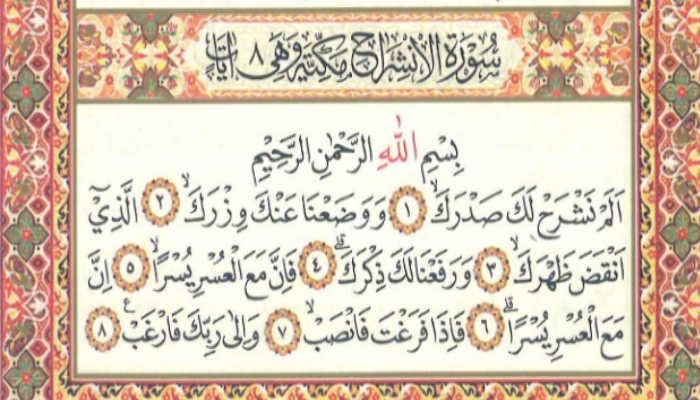 سُوْرَةُ الْاِنْشِرَاحِ مَكِّيَّةٌ وَهِىَ ٨ اٰيَاتٍ
بِسْمِ اللّٰهِ الرَّحْمٰنِ الرَّحِيْمِ
اَلَمْ نَشْرَحْ لَكَ صَدْرَكَۙ ١ وَوَضَعْنَا عَنْكَ وِزْرَكَۙ ٢ الَّذِيْٓ
اَنْقَضَ ظَهْرَكَۙ ٣ وَرَفَعْنَا لَكَ ذِكْرَكَۗ ٤ فَاِنَّ مَعَ الْعُسْرِ يُسْرًاۙ ٥ اِنَّ
مَعَ الْعُسْرِ يُسْرًاۗ ٦ فَاِذَا فَرَغْتَ فَانْصَبْۙ ٧ وَاِلٰى رَبِّكَ فَارْغَبْ ࣖ ٨